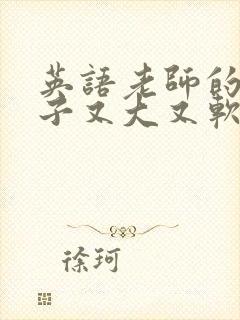 英語老師的
子又大又軟
徐珂